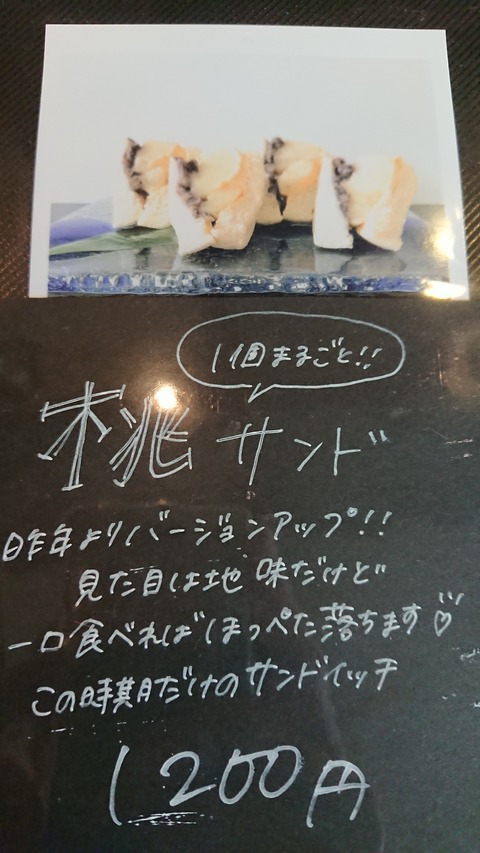 1個まるごと!!
桃サンド
昨年よりバージョンアップ!!
見た目は地味だけど
一口食べればほっぺた落ちます♡
この時期だけのサンドイッチ
1200円